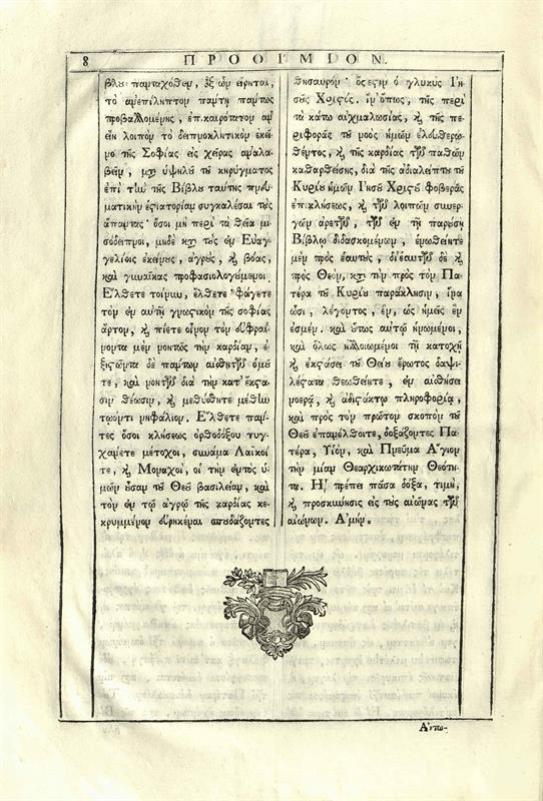 8 ΠΡΟΟΙΜΙΟΝ.
βλου πανταχόθεν, ἐξ ὧν εἴρηται,
τὸ ἀνεπίληπτον πάντη πάντως
προβαλλομένης, ἐπικαιρότατον ἂν
εἴη λοιπὸν τὸ δειπνοκλητικὸν ἐκεῖ-
νο τῆς Σοφίας εἰς χεῖρας ἀναλα-
βεῖν, μεθ' ὑψηλοῦ τοῦ κηρύγματος
ἐπὶ τὴν τῆς Βίβλου ταύτης πνευ-
ματικὴν ἑστιατορίαν συγκαλέσαι τοὺς
ἅπαντας· ὅσοι μὴ περὶ τὰ θεῖα μι-
σόδειπνοι, μηδὲ κατὰ τοὺς ἐν Εὐαγ-
γελίοις ἐκείνους, ἀγροὺς, καὶ βόας,
καὶ γυναῖκας προφασιολογούμενοι.
Ἔλθετε τοίνυν, ἔλθετε· Φάγετε
τὸν ἐν αὐτῇ γνωστικὸν τῆς σοφίας
ἄρτον, καὶ πίετε οἶνον τὸν εὐφραί-
νοντα μὲν νοητῶς τὴν καρδίαν, ἐ-
ξιστῶντα δὲ πάντων αἰσθητῶν ὁμοῦ
τε, καὶ νοητῶν διὰ τὴν κατ' ἔκστα-
σιν θέωσιν, καὶ μεθύσθητε μέθην
τῳόντι νηφάλιον. Ἔλθετε πάν-
τες ὅσοι κλήσεως ὀρθοδόξου τυγ-
χάνετε μέτοχοι, συνάμα Λαϊκοί
τε, καὶ Μοναχοὶ, οἱ τὴν ἐντὸς ὑ-
μῶν οὖσαν τοῦ Θεοῦ βασιλείαν, καὶ
τὸν ἐν τῷ ἀγρῷ τῆς καρδίας κε-
κρυμμένον εὑρηκέναι σπουδάζοντες
θησαυρόν· ὅς ἐστιν ὁ γλυκὺς Ἰη-
σοῦς Χριστός. ἵν' ὅπως, τῆς περὶ
τὰ κάτω αἰχμαλωσίας, καὶ τῆς πε-
ριφορᾶς τοῦ νοὸς ἡμῶν ἐλευθερω-
θέντος, καὶ τῆς καρδίας τῶν παθῶν
καθαρθείσης, διὰ τῆς ἀδιαλείπτου τοῦ
Κυρίου ἡμῶν Ἰησοῦ Χριστοῦ φοβερᾶς
ἐπικλήσεως, καὶ τῶν λοιπῶν συνερ-
γῶν ἀρετῶν, τῶν ἐν τῇ παρούσῃ
Βίβλῳ διδασκομένων, ἑνωθείητε
μὲν πρὸς ἑαυτοὺς, δι' ἑαυτῶν δὲ καὶ
πρὸς Θεὸν, κατὰ τὴν πρὸς τὸν Πα-
τέρα τοῦ Κυρίου παράκλησιν, ἵνα
ὦσι, λέγοντος, ἓν, ὡς ἡμεῖς ἕν
ἐσμεν. καὶ οὕτως αὐτῷ ἡνωμένοι,
καὶ ὅλως ἠλλοιωμένοι τῇ κατοχῇ
καὶ ἐκστάσει τοῦ Θείου ἔρωτος δαψι-
λέστατα θεωθείητε, ἐν αἰσθήσει
νοερᾷ, καὶ ἀδιστάκτῳ πληροφορίᾳ,
καὶ πρὸς τὸν πρῶτον σκοπὸν τοῦ
Θεοῦ ἐπανέλθοιτε, δοξάζοντες Πα-
τέρα, Υἱὸν, καὶ Πνεῦμα Ἅγιον
τὴν μίαν Θεαρχικωτάτην Θεότη-
τα. Ἧ πρέπει πᾶσα δόξα, τιμὴ,
καὶ προσκύνησις εἰς τοὺς αἰῶνας τῶν
αἰώνων. Ἀμήν.